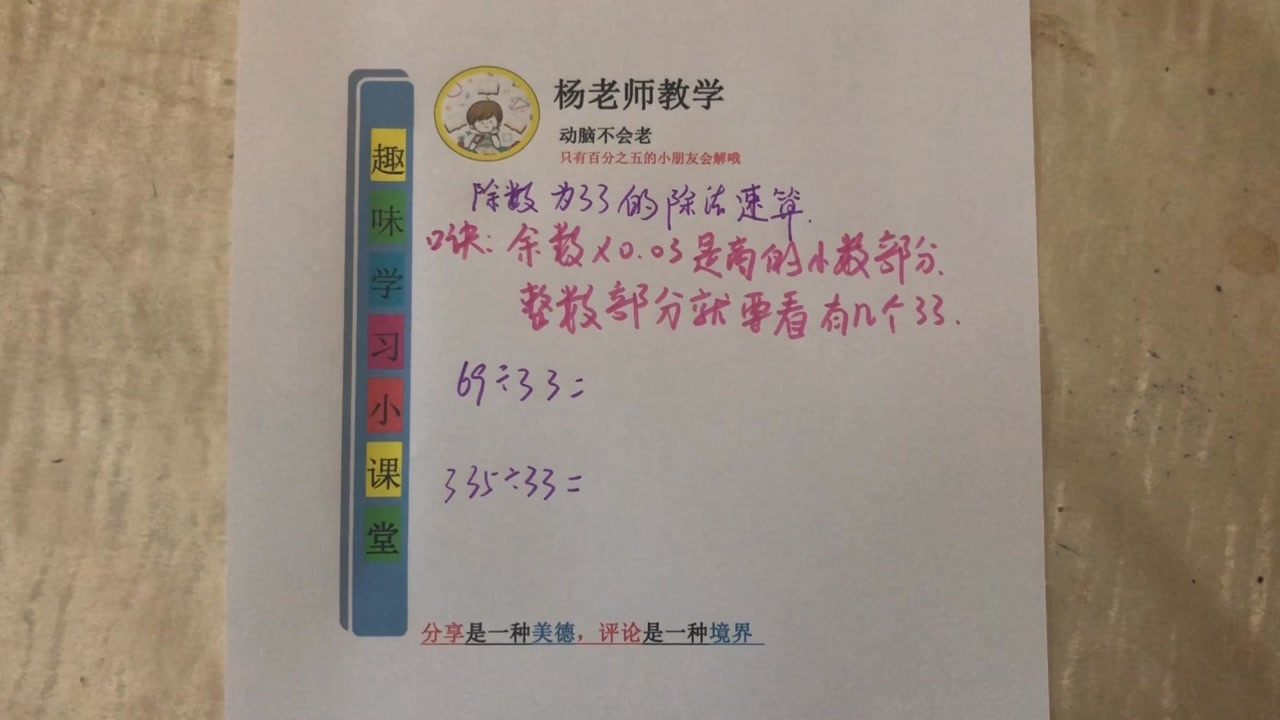 杨老师教学
动脑不会老
只有百分之五的小朋友会解哦
趣味学习小课堂
除数为33的除法速算.
口诀:余数×0.03是商的小数部分.
整数部分就要看有几个33.
69÷33=
335÷33=
分享是一种美德，评论是一种境界